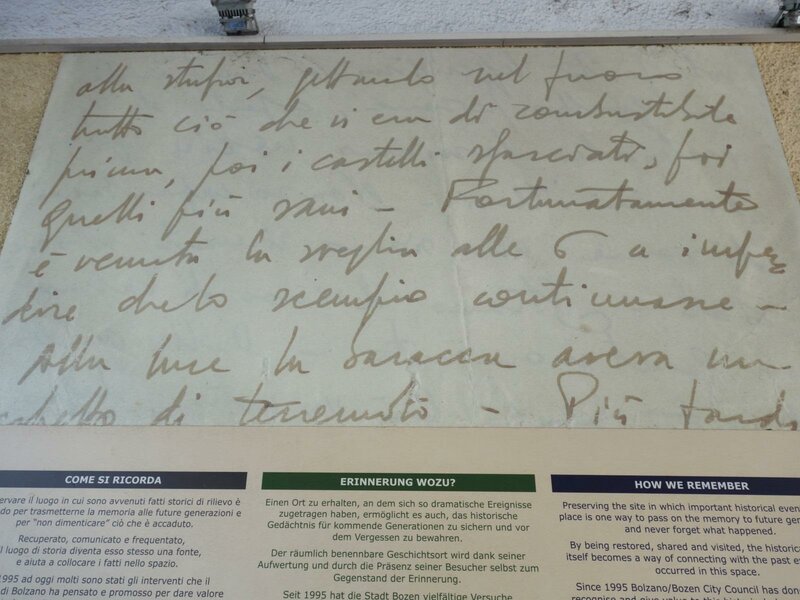 alla stufa, gettando nel fuoco
tutto ciò che vi era di combustibile
prima, poi i castelli sfasciati, poi
quelli più sani – Fortunatamente
è venuta la sveglia alle 6 a impe
dire che lo scempio continuasse –
Alla luce la baracca aveva un
aspetto di terremoto – Più tardi
COME SI RICORDA
servare il luogo in cui sono avvenuti fatti storici di rilievo è
do per trasmetterne la memoria alle future generazioni e
per “non dimenticare” ciò che è accaduto.
Recuperato, comunicato e frequentato,
l luogo di storia diventa esso stesso una fonte,
e aiuta a collocare i fatti nello spazio.
1995 ad oggi molti sono stati gli interventi che il
di Bolzano ha pensato e promosso per dare valore
ERINNERUNG WOZU?
Einen Ort zu erhalten, an dem sich so dramatische Ereignisse
zugetragen haben, ermöglicht es auch, das historische
Gedächtnis für kommende Generationen zu sichern und vor
dem Vergessen zu bewahren.
Der räumlich benennbare Geschichtsort wird dank seiner
Aufwertung und durch die Präsenz seiner Besucher selbst zum
Gegenstand der Erinnerung.
Seit 1995 hat die Stadt Bozen vielfältige Versuche
HOW WE REMEMBER
Preserving the site in which important historical even
place is one way to pass on the memory to future gen
and never forget what happened.
By being restored, shared and visited, the historica
itself becomes a way of connecting with the past e
occurred in this space.
Since 1995 Bolzano/Bozen City Council has don
recognise and give value to this